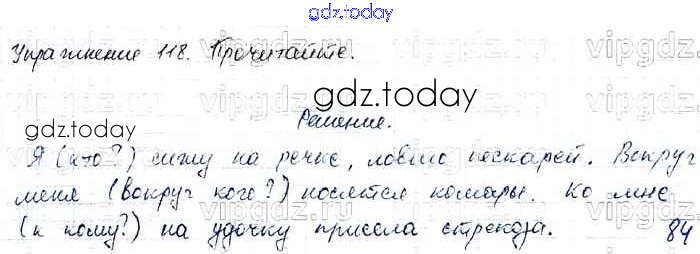 gdz.today
Упражнение 118. Прочитайте.
gdz.today
gdz.today
Решение.
Я (кто?) сижу на речке, ловлю пескарей. Вокруг
меня (вокруг кого?) носятся комары. Ко мне
(к кому?) на удочку присела стрекоза. 84